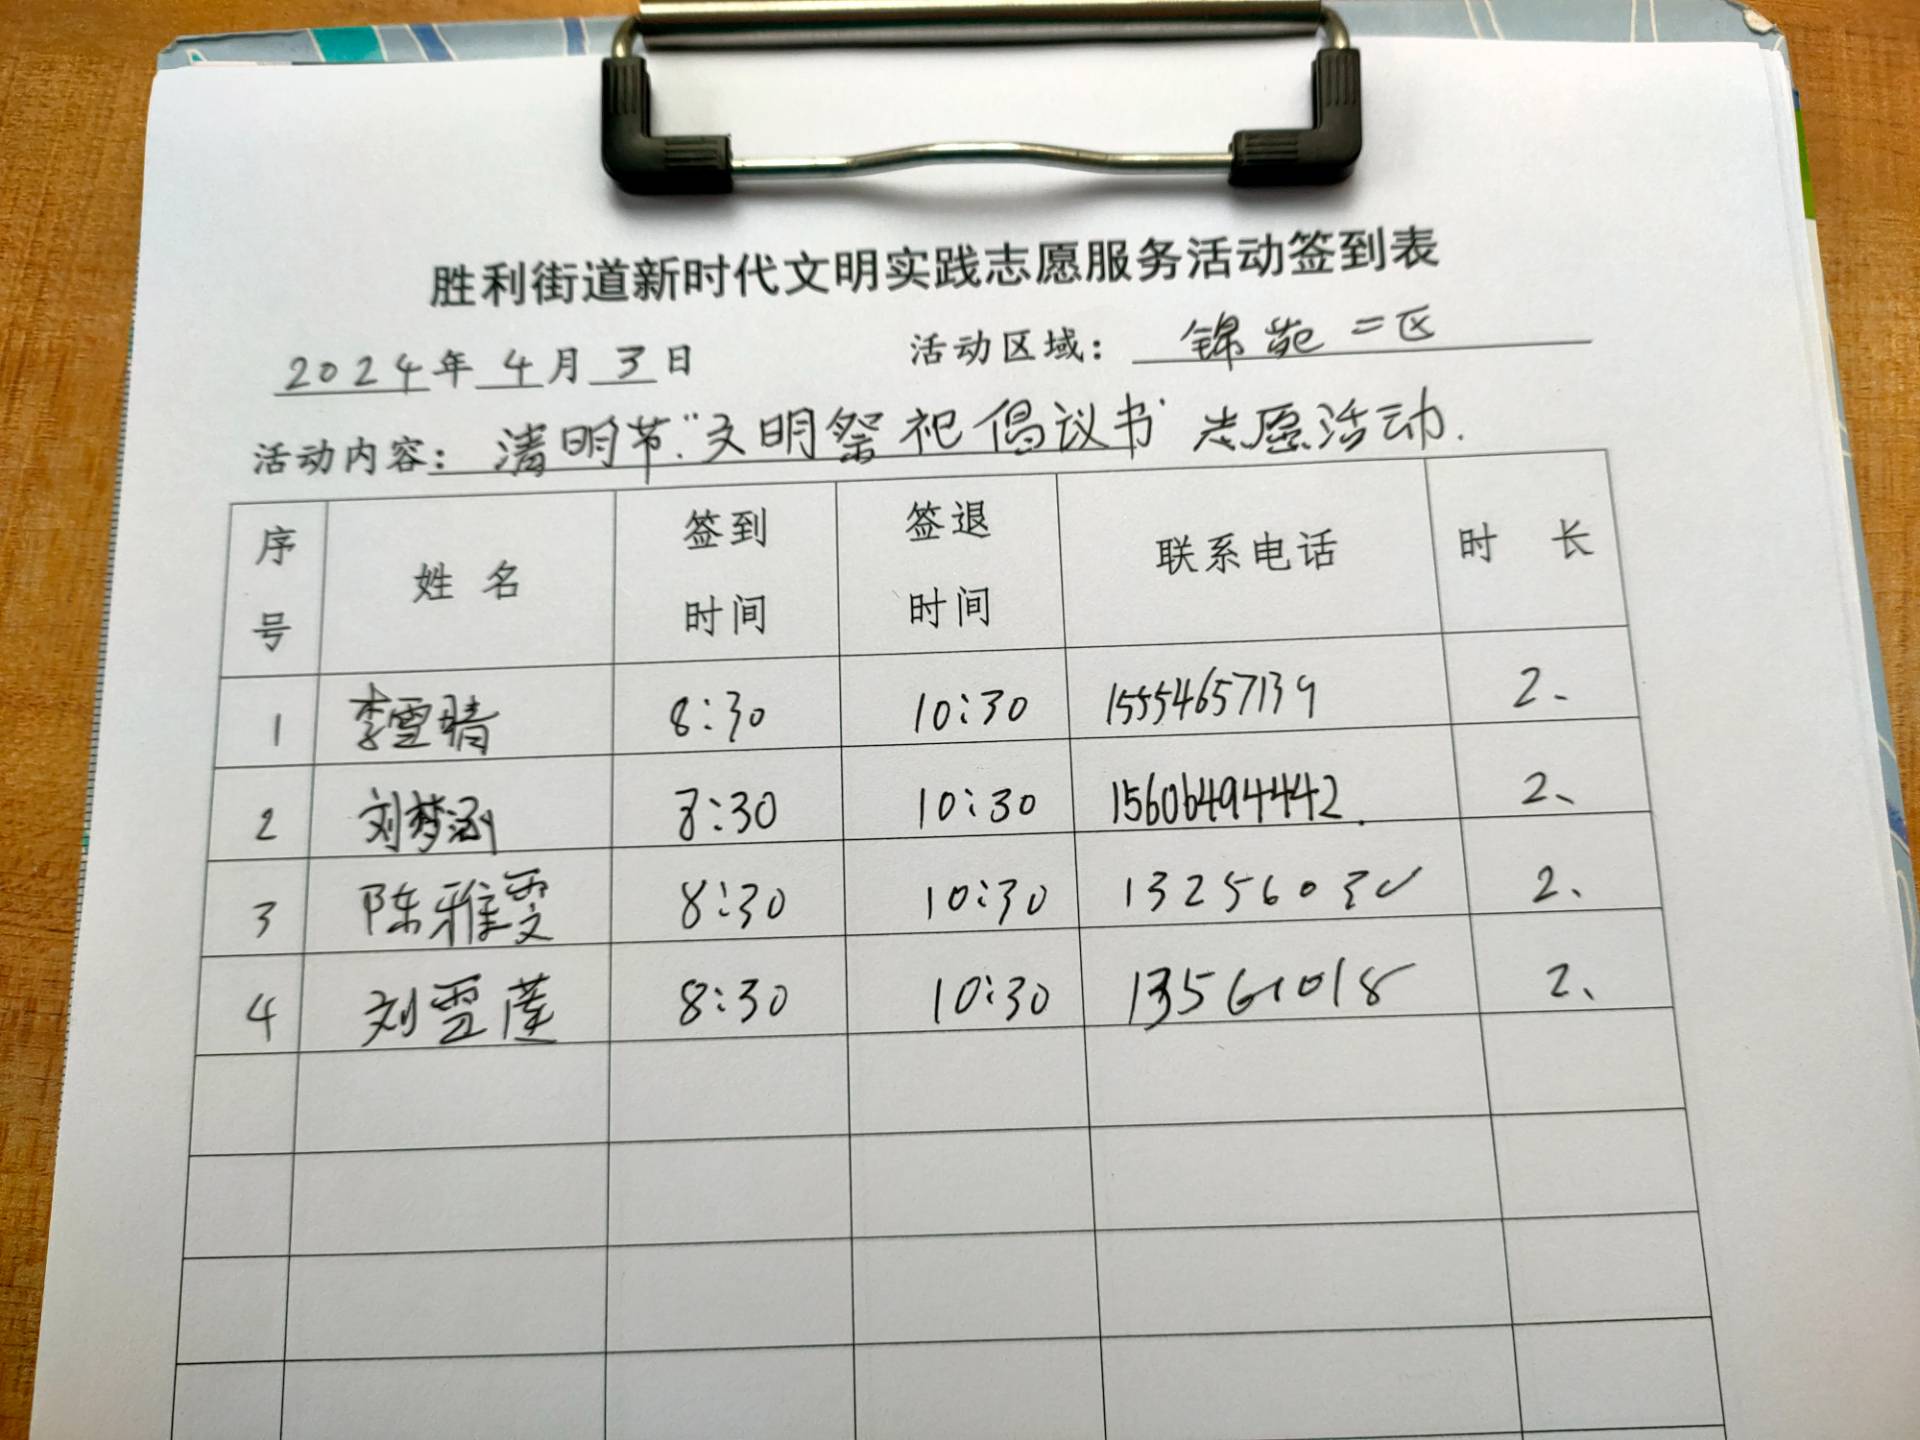 胜利街道新时代文明实践志愿服务活动签到表
2024年 4月 3日 活动区域： 锦苑二区
活动内容： 清明节“文明祭祀倡议书”志愿活动.
序号 姓名 签到时间 签退时间 联系电话 时长
1 李雪晴 8:30 10:30 15554657139 2、
2 刘梦涵 8:30 10:30 15606494442. 2、
3 陈雅雯 8:30 10:30 2、
4 刘雪莲 8:30 10:30 2、